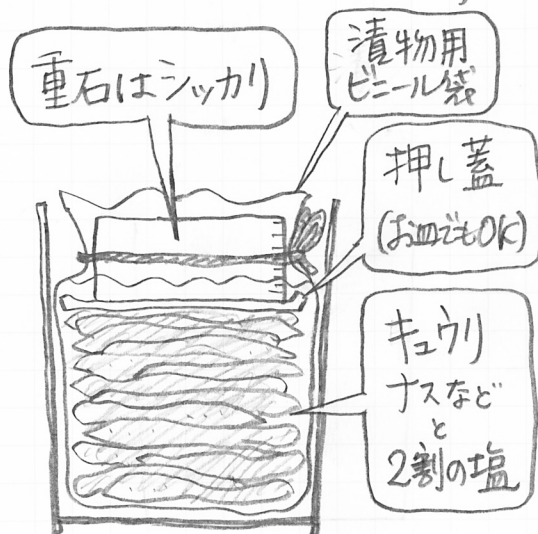 重石はシッカリ
漬物用
ビニール袋
押し蓋
(お皿でもOK)
キュウリ
ナスなど
と
2割の塩